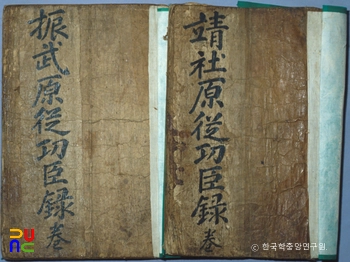 靖社原從功臣錄 卷
振武原從功臣錄 卷
© 한국학중앙연구원